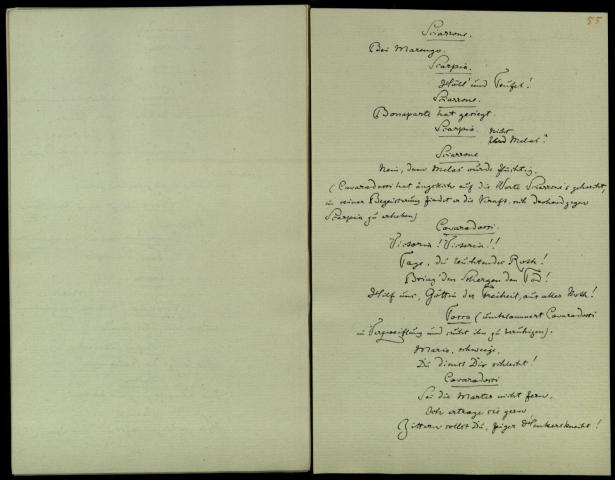 55
Sciarrone.
Bei Marengo.
Scarpia.
Höll' und Teufel!
Sciarrone.
Bonaparte hat gesiegt.
Scarpia. Nicht
Melas?
Sciarrone
Nein, denn Melas wurde flüchtig.
(Cavaradossi hat ängstlich auf die Worte Sciarrone's gehorcht,
in seiner Begeisterung findet er die Kraft, sich drohend gegen
Scarpia zu erheben)
Cavaradossi.
Victoria! Victoria!!
Tage, du leuchtendes Roth!
Bring' den Schergen den Tod!
Hilf uns, Göttin der Freiheit, aus aller Noth!
Tosca (umklammert Cavaradossi
in Verzweiflung und sucht ihn zu beruhigen).
Mario, schweige,
Du dienst Dir schlecht!
Cavaradossi
Sei die Marter nicht fern,
Ich ertrage sie gern,
Zittern sollst Du, feiger Henkersknecht!